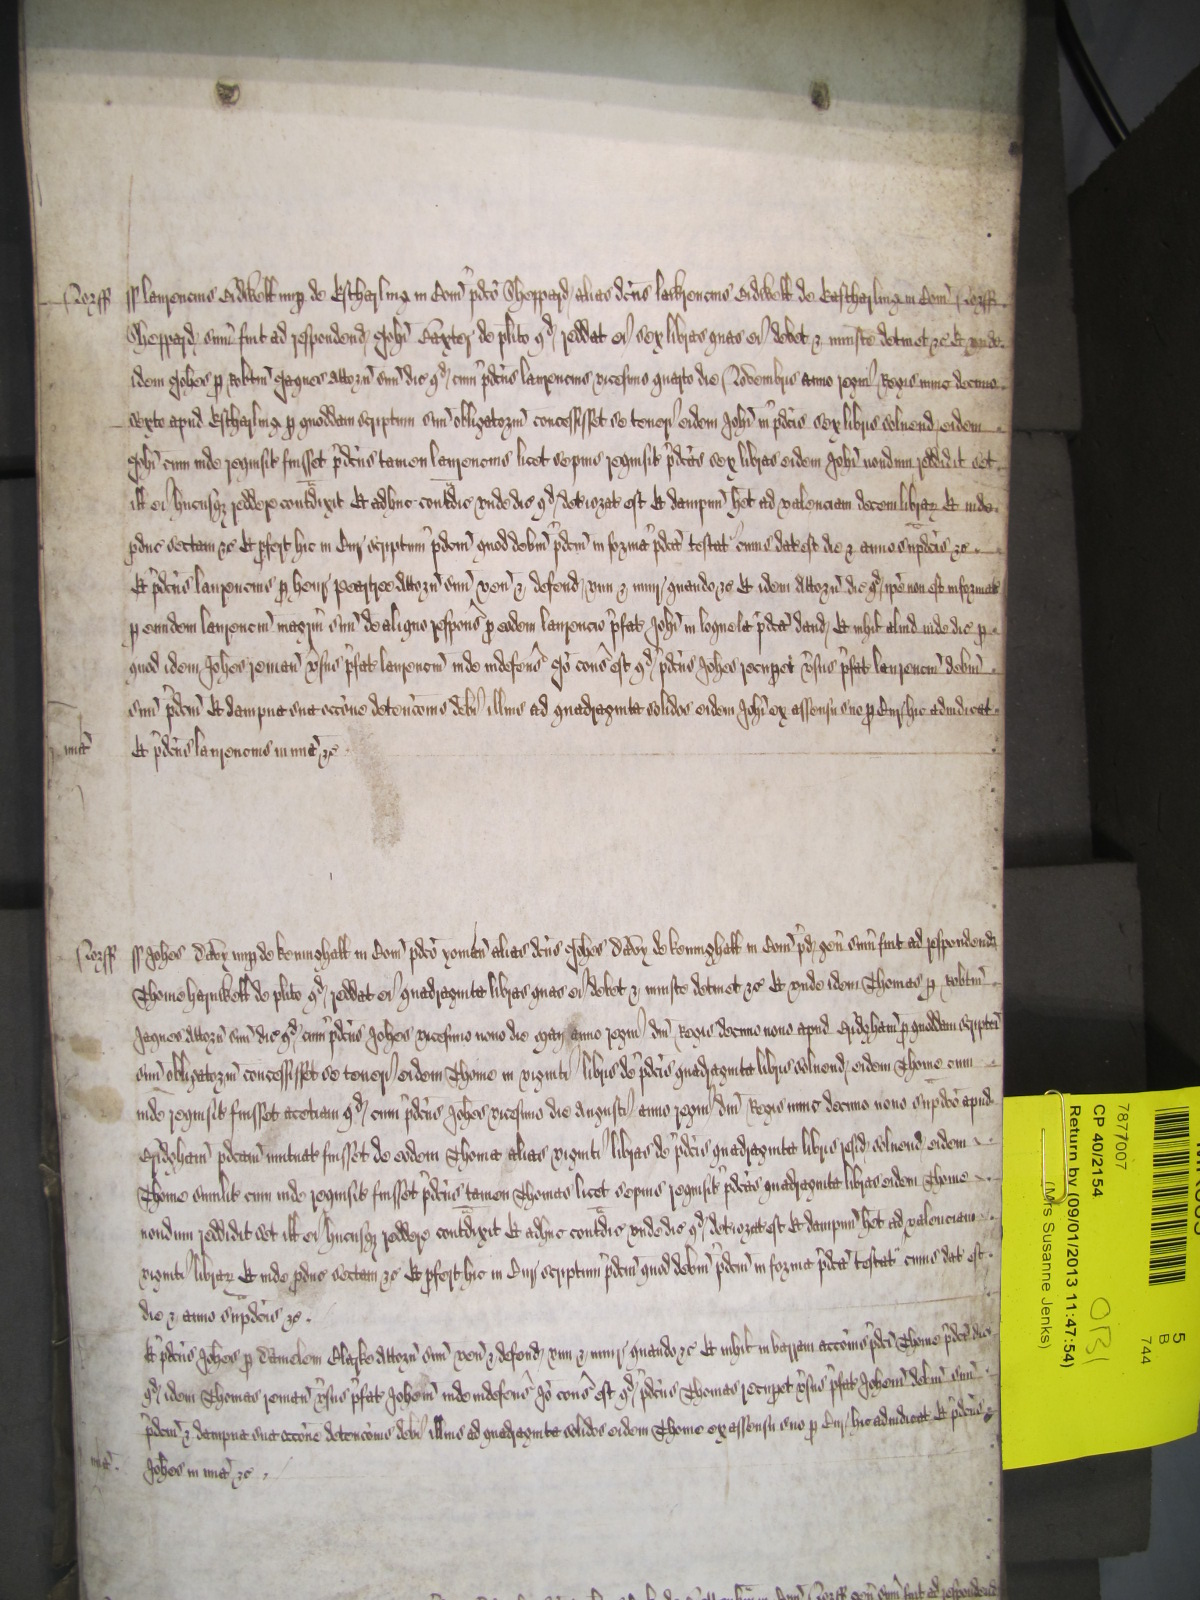 Norff ss laurencius Bidwell nup de Estharling in Com pdco Sheppard alias dcus laurencius Bidwell de Eastharling in Com Norff
Sheppard sum fuit ad respondend Johi Baxter de plito qd reddat ei sex libras quas ei debet & iniuste detinet &c Et unde
idem Johes p Robtm Jaques attorn suu dic qd cum pdcus laurencius vicesimo quarto die Novembris anno regni Regis nunc decimo
sexto apud Estharling p quoddam scriptum suu obligatoriu concessisset se teneri eidem Johi in pdcis sex libris solvend eidem
Johi cum inde requisit fuisset pdcus tamen laurencius licet sepius requisit pdcas sex libras eidem Johi nondum reddidit set
ill ei hucusq reddere contradixit Et adhuc contradic unde dic qd deteriorat est Et dampnu het ad valenciam decem librar Et inde
pduc sectam &c Et pfert hic in Cur scriptum pdcm quod debm pdcm in forma pdca testat cuius dat est die & anno supdcis &c
Et pdcus laurencius p henr Peartree attorn suu ven & defend vim & iniur quando &c Et idem attorn dic qd ipe non est informat
p eundem laurenciu magrm suu de aliquo respons p eodem laurencio pfat Johi in loquela pdca dand Et nihil aliud inde dic p
quod idem Johes reman vsus pfat laurenciu inde indefens Jo cons est qd pdcus Johes recupet vsus pfat laurenciu debm
suu pdcm Et dampna sua occone detencionis debi illius ad quadraginta solidos eidem Johi ex assensu suo p Cur hic adiudicat
mia Et pdcus laurencius in mia &c
Norff ss Johes nup de Kenninghall in Com pdco yoman alias dcus Johes de Kenninghall in Com pd gen sum fuit ad respondend
Thome hartwell de plito qd reddat ei quadraginta libras quas ei debet & iniuste detinet &c Et unde idem Thomas p Robtm
Jaques attorn suu dic qd cum pdcus Johes vicesimo nono die Maij anno regni dni Regis decimo nono apud Bridgham p quoddam scriptu
suu obligatoriu concessisset se teneri eidem Thome in viginti libris de pdcis quadraginta libris solvend eidem Thome cum
inde requisit fuisset acetiam qd cum pdcus Johes vicesimo die Augusti anno regni dni Regis nunc decimo nono supdco apud
Bridgham pdcam mutuat fuisset de eodem Thoma alias viginti libras de pdcis quadraginta libris resid solvend eidem
Thome similit cum inde requisit fuisset pdcus tamen Thomas licet sepius requisit pdcas quadraginta libras eidem Thome
nondum reddidit set ill ei hucusq reddere contradixit Et adhuc contradic unde dic qd deteriorat est Et dampnu het ad valenciam
viginti librar Et inde pduc sectam &c Et pfert hic in Cur scriptum pdcm quod debm pdcm in forma pdca testat cuius dat est
die & anno supdcis &c
Et pdcus Johes p Danielem Clarke attorn suu ven & defend vim & iniur quando &c Et nihil in barram accionis pdci Thome pdca dic
qd idem Thomas reman vsus pfat Johem inde indefens Jo cons est qd pdcus Thomas recupet vsus pfat Johem debm suu
pdcm & dampna sua occone detencionis debi illius ad quadraginta solidos eidem Thome ex assensu suo p Cur hic adiudicat Et pdcus
mia Johes in mia &c
7877007
CP 40/2154
Return by (09/01/2013 11:47:54)
(Mrs Susanne Jenks)
5
B
744